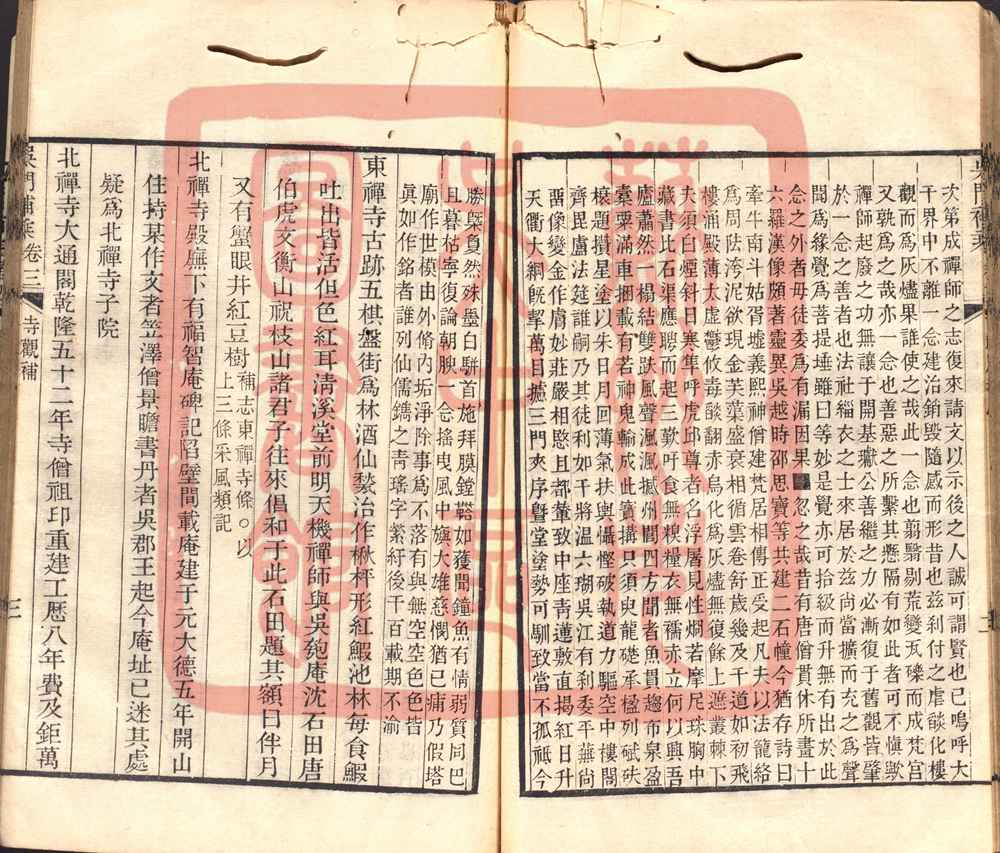 次第成禪師之志復來請文以示後之人誠可謂賢也已嗚呼大
千界中不離一念建治銷毀隨感而形昔也茲刹付之虐燄化樓
觀而為灰燼果誰使之哉此一念也翦翳剔荒變瓦礫而成梵宮
又孰為之哉亦一念也善惡之所繫其懸隔有如此者可不愼歟
禪師起廢之功無讓于開基瓛公善繼之力必漸復于舊觀皆肇
於一念之善者也法社緇衣之士來居於茲尚當擴而充之為聲
聞為緣覺為菩提埵雖曰等妙是覺亦可拾級而升無有出於此
念之外者毋徒委為有漏因果 忽之哉昔有唐僧貫休所畫十
六羅漢像頗著靈異吳越時邵思寶等共建二石幢今猶存詩曰
牽牛南斗姑胥墟義熙神僧建梵居相傳正受起凡夫以法籠絡
為周阹洿泥欲現金芙蕖盛衰相循雲卷舒歲幾及千道如初飛
樓涌殿薄太虛鬱攸毒燄翻赤烏化為灰燼無復餘上遮叢棘下
夫須白煙斜日寒隼呼虎邱尊者名浮屠見性烱若摩尼珠胸中
藏書比石渠應聘而起三歎吁食無糗糧衣無襦赤立何以興吾
廬蕭然一榻結雙趺風聲渢渢撼州閭四方聞者魚貫趨布泉盈
囊粟滿車捆載有若神鬼輸成此寶搆只須臾龍礎承楹列碔砆
榱題攢星塗以朱日月回薄氣扶輿懾慳破執道力驅空中樓閣
齊毘盧法筵誰嗣乃其徒利如干將溫六瑚吳江有利委平蕪尚
罶像變金作膚妙莊嚴相愍且都輦致中座靑蓮敷直揚紅日升
天衢大綱旣挈萬目攄三門夾序曁堂塗勢可馴致當不孤祇今
勝槩負然殊壘白騈首施拜膜鏜鞳如獲聞鐘魚有情弱質同巴
且暮枯寧復論朝腴一念搖曳風中旗大雄慈憫猶已痡乃假塔
廟作世模由外脩內垢淨除事爲不落有與無空空色色色皆
眞如作銘者誰列仙儒鐫之靑瑤字縈紆後千百載期不渝
東禪寺古跡五棋盤街爲林酒仙蔾治作楸枰形紅鰕池林每食鰕
吐出皆活但色紅耳淸溪堂前明天機禪師與吳匏庵沈石田唐
伯虎文衡山祝枝山諸君子往來倡和于此石田題其額曰伴月
又有蟹眼井紅豆樹 補志東禪寺條○以
上三條采風類記
北禪寺殿廡下有福智庵碑記陷壁間載庵建于元大德五年開山
住持某作文者笠澤僧景瞻書丹者吳郡王起今庵址已迷其處
疑爲北禪寺子院
北禪寺大通閣乾隆五十二年寺僧祖印重建工歷八年費及鉅萬
吳門補乘 卷三 寺觀補 三